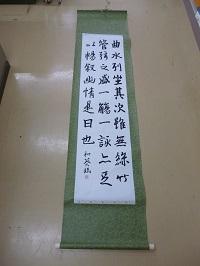 曲水列坐其次雖無絲竹
管弦之盛一觴一詠亦足
以暢叙幽情是日也